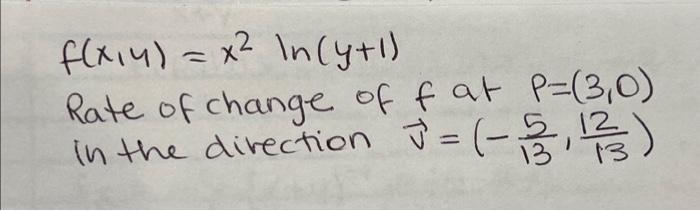 f(x,y) = x² ln(y+1)
Rate of change of f at P=(3,0)
in the direction v⃗ = (-5/13, 12/13)